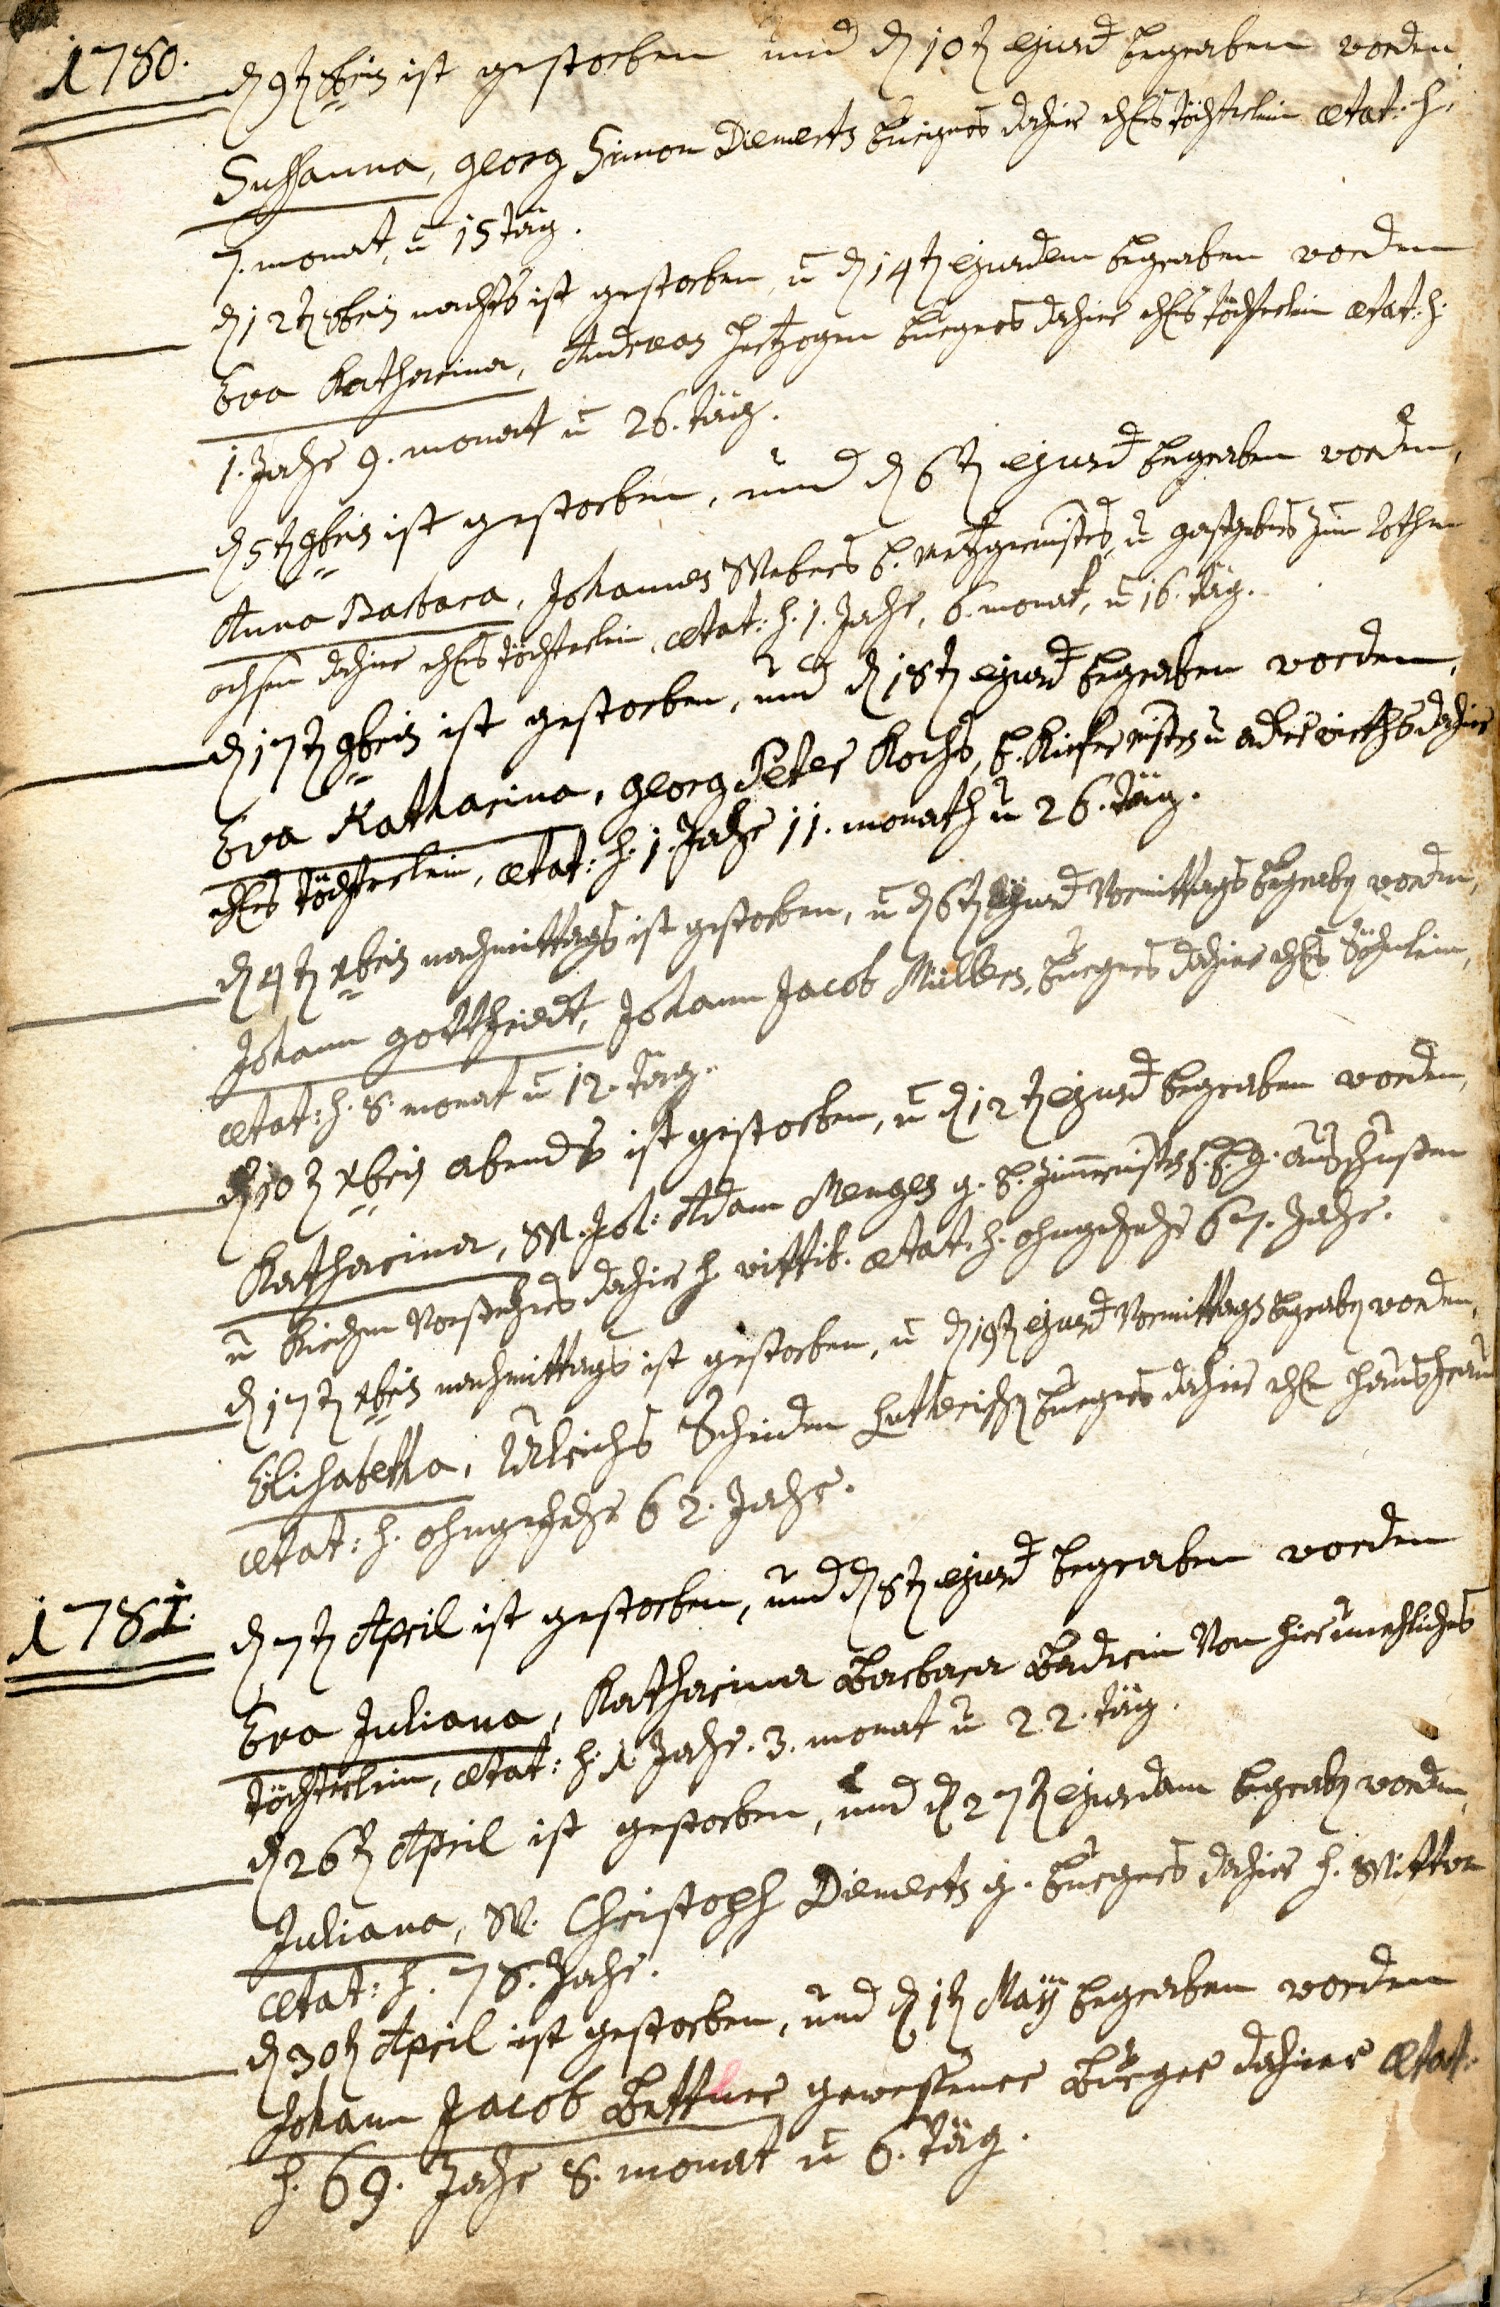 1780.
d 9t 8bris ist gestorben und d 10t ejusd begraben worden
Susanna, Georg Simon Diemerts burgers dahier ehl töchterlein ætat: h.
7. monat, u 15 täg.
d 12t 8bris nachts ist gestorben, u d 14t ejusdem begraben worden
Eva Katharina, Andreas Hertzogen burgers dahier ehl töchterlein ætat: h:
1. Jahr 9. monat u 26. täg.
d 5t 9bris ist gestorben, und d 6t ejusd begraben worden,
Anna Barbara, Johannes Webers b. metzgermstrs u gastgebers zum rothen
ochsen dahier ehls töchterlein, ætat: h. 1. Jahr, 6. monat, u 16. täg.
d 17t 9bris ist gestorben, und d 18t ejusd begraben worden,
Eva Katharina, Georg Peter Kochs, b. Kiefer mstrs u adlerwirths dahier
ehls töchterlein, ætat: h. 1. Jahr 11. monath u 26. täg.
d 4t xbris nachmittags ist gestorben, u d 6t ejusd Vormittags begrab worden,
Johann Gottfriedt, Johann Jacob Müllers, burgers dahier ehls Söhnlein,
ætat: h. 8. monat u 12. täg.
d 10t xbris abends ist gestorben, u d 12t ejusd begraben worden,
Katharina, W. Joh: Adam Menges g. b. Zimmstrs, g. ausschussen
u Kirchen Vorstehers dahier h. wittib. ætat. h. ohngefehr 67. Jahr.
d 17t xbris nachmittags ist gestorben, u d 19t ejusd Vormittags begrab worden,
Elisabetha, Ulrichs burgers dahier ehl haußfrau
ætat: h. ohngefehr 62. Jahr.
1781.
d 7t April ist gestorben, und d 8t ejusd begraben worden
Eva Juliana, Katharina Barbara Badrin Von hier unehliches
töchterlein, ætat: h. 1. Jahr. 3. monat u 22. täg.
d 26t April ist gestorben, und d 27t ejusdem begrab worden,
Juliana, W. Christoph Diemerts g. burgers dahier h. Wittwe
ætat: h. 78. Jahr.
d 30t April ist gestorben, und d 1t Maÿ begraben worden
Johann Jacob Bettner gewesener burger dahier ætat.
h. 69. Jahr 8. monat u 6. täg.